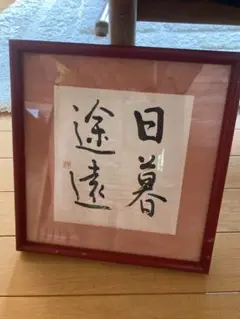 日暮
途遠